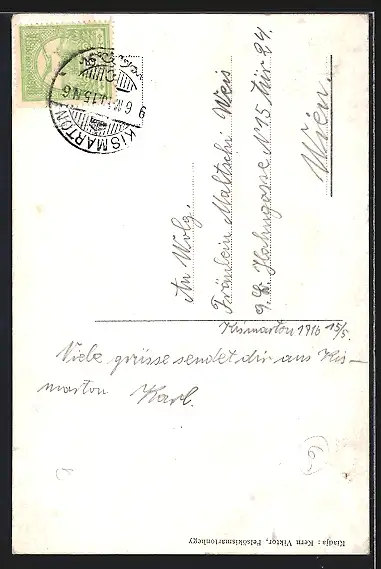 KISMARTON
An Wolg.
Fräulein Maltschi Weis
9. Hahngasse N 15 Tür 24.
Wien.
Kismarton 1916 15/5.
Viele grüsse sendet dir aus Kis-
marton Karl.
Kiadja: Kern Viktor, Felsőkismartonhegy